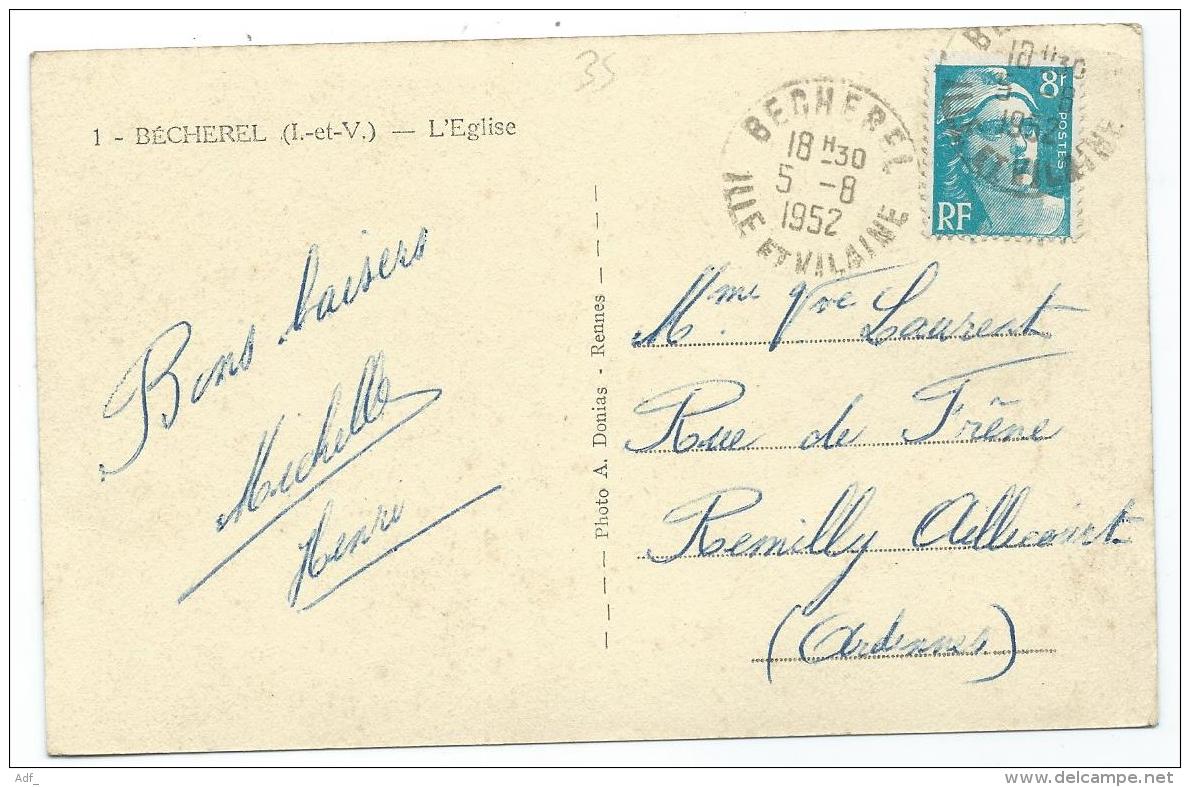 35
1 - BÉCHEREL (I.-et-V.) — L'Eglise
BECHEREL
18 H30
5 -8
1952
ILLE ET VILAINE
18 H30
5 -8
1952
ET VILAINE
8f
POSTES
RF
Bons baisers
Michelle
Henri
Photo A. Donias - Rennes
Mme Vve Laurent
Rue de Frêne
Remilly Aillicourt
(Ardennes)
Adf_
delcampe.net